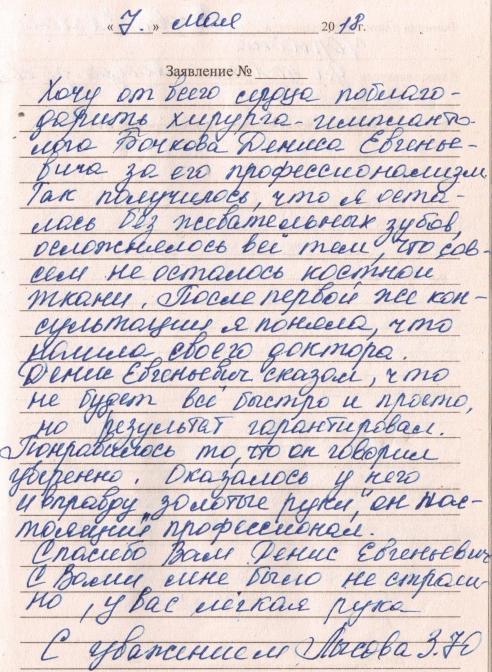 « 7. » мая 2018г.
Заявление №
Хочу от всего сердца поблаго-
дарить хирурга-импланто-
лога Бочкова Дениса Евгенье-
вича за его профессионализм.
Так получилось, что я оста-
лась без жевательных зубов,
осложнялось всё тем, что сов-
сем не осталось костной
ткани. После первой же кон-
сультации я поняла, что
нашла своего доктора.
Денис Евгеньевич сказал, что
не будет всё быстро и просто,
но результат гарантировал.
Понравилось то, что он говорил
уверенно. Оказалось у него
и вправду "золотые руки", он нас-
тоящий профессионал.
Спасибо Вам Денис Евгеньевич
С Вами мне было не страш-
но, у Вас лёгкая рука
С уважением Лысова З.Ю